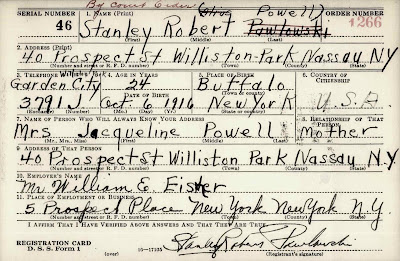 By Court Order (also Powell)
SERIAL NUMBER 1. NAME (Print) ORDER NUMBER
46 Stanley Robert Pawlowski 1266
(First) (Middle) (Last)
2. ADDRESS (Print)
40 Prospect St Williston-Park Nassau N.Y.
(Number and street or R. F. D. number) (Town) (County) (State)
3. TELEPHONE Williston Park 4. AGE IN YEARS 5. PLACE OF BIRTH 6. COUNTRY OF CITIZENSHIP
Garden City 24 Buffalo
DATE OF BIRTH (Town or county) U.S.A.
3791J Oct. 6 1916 New York
(Exchange) (Number) (Mo.) (Day) (Yr.) (State or country)
7. NAME OF PERSON WHO WILL ALWAYS KNOW YOUR ADDRESS 8. RELATIONSHIP OF THAT PERSON
Mrs Jacqueline Powell Mother
(Mr., Mrs., Miss) (First) (Middle) (Last)
9. ADDRESS OF THAT PERSON
40 Prospect St Williston Park Nassau N.Y.
(Number and street or R. F. D. number) (Town) (County) (State)
10. EMPLOYER'S NAME
Mr William E. Eister
11. PLACE OF EMPLOYMENT OR BUSINESS
5 Prospect Place New York New York N.Y.
(Number and street or R. F. D. number) (Town) (County) (State)
I AFFIRM THAT I HAVE VERIFIED ABOVE ANSWERS AND THAT THEY ARE TRUE.
REGISTRATION CARD
D. S. S. Form 1 (over) Stanley Robert Pawlowski
(Registrant's signature)